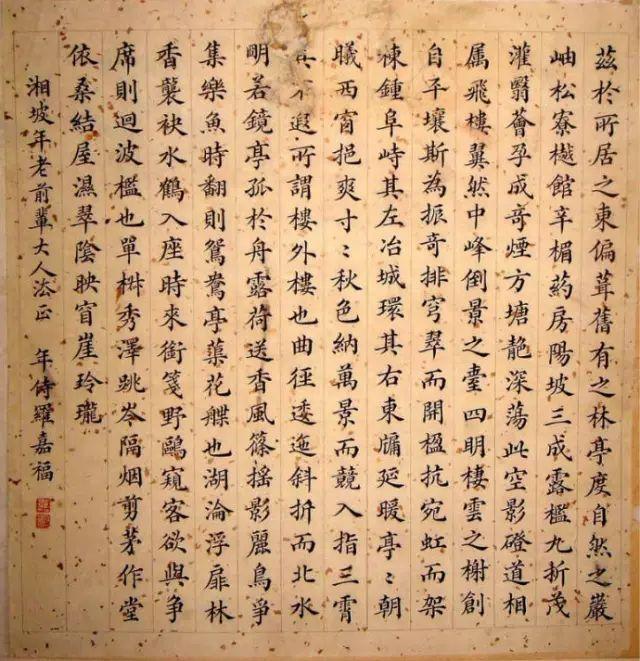 茲於所居之東偏葺舊有之林亭度自然之巖
岫松寮檖館辛楣葯房陽坡三成露檻九折茂
灌翳薈孕成奇煙方塘靘深蕩此空影磴道相
属飛樓翼然中峰倒景之臺四明棲雲之榭創
自平壤斯為振奇排穹翠而開楹抗宛虹而架
棟鍾阜峙其左冶城環其右東牖延暖亭〻朝
曦西窗挹爽寸〻秋色納萬景而競入指三霄
其不遐所謂樓外樓也曲徑逶迤斜折而北水
明若鏡亭孤於舟露荷送香風篠搖影麗鳥爭
集樂魚時翻則鴛鴦亭蕖花艓也湖淪浮扉林
香襲袂水鶴入座時來銜箋野鷗窺客欲與争
席則迴波檻也單椒秀澤跳岑隔烟剪茅作堂
依桑結屋濕翠陰映窅崖玲瓏
湘坡年老前輩大人法正 年侍羅嘉福